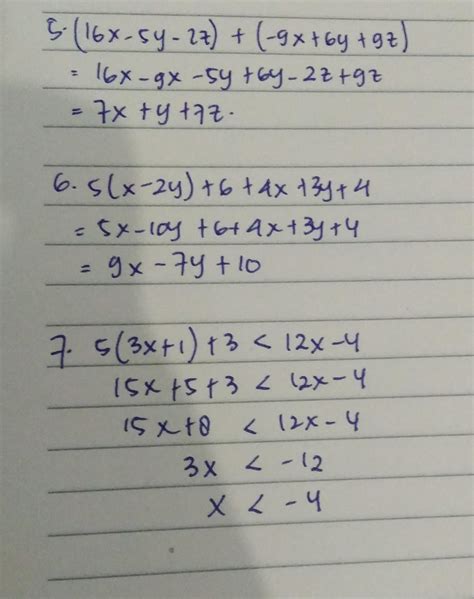 5. (16x-5y-2z) + (-9x+6y+9z)
= 16x-9x-5y+6y-2z+9z
= 7x+y+7z.
6. 5(x-2y)+6+4x+3y+4
= 5x-10y+6+4x+3y+4
= 9x-7y+10
7. 5(3x+1)+3 < 12x-4
15x+5+3 < 12x-4
15x+8 < 12x-4
3x < -12
x < -4